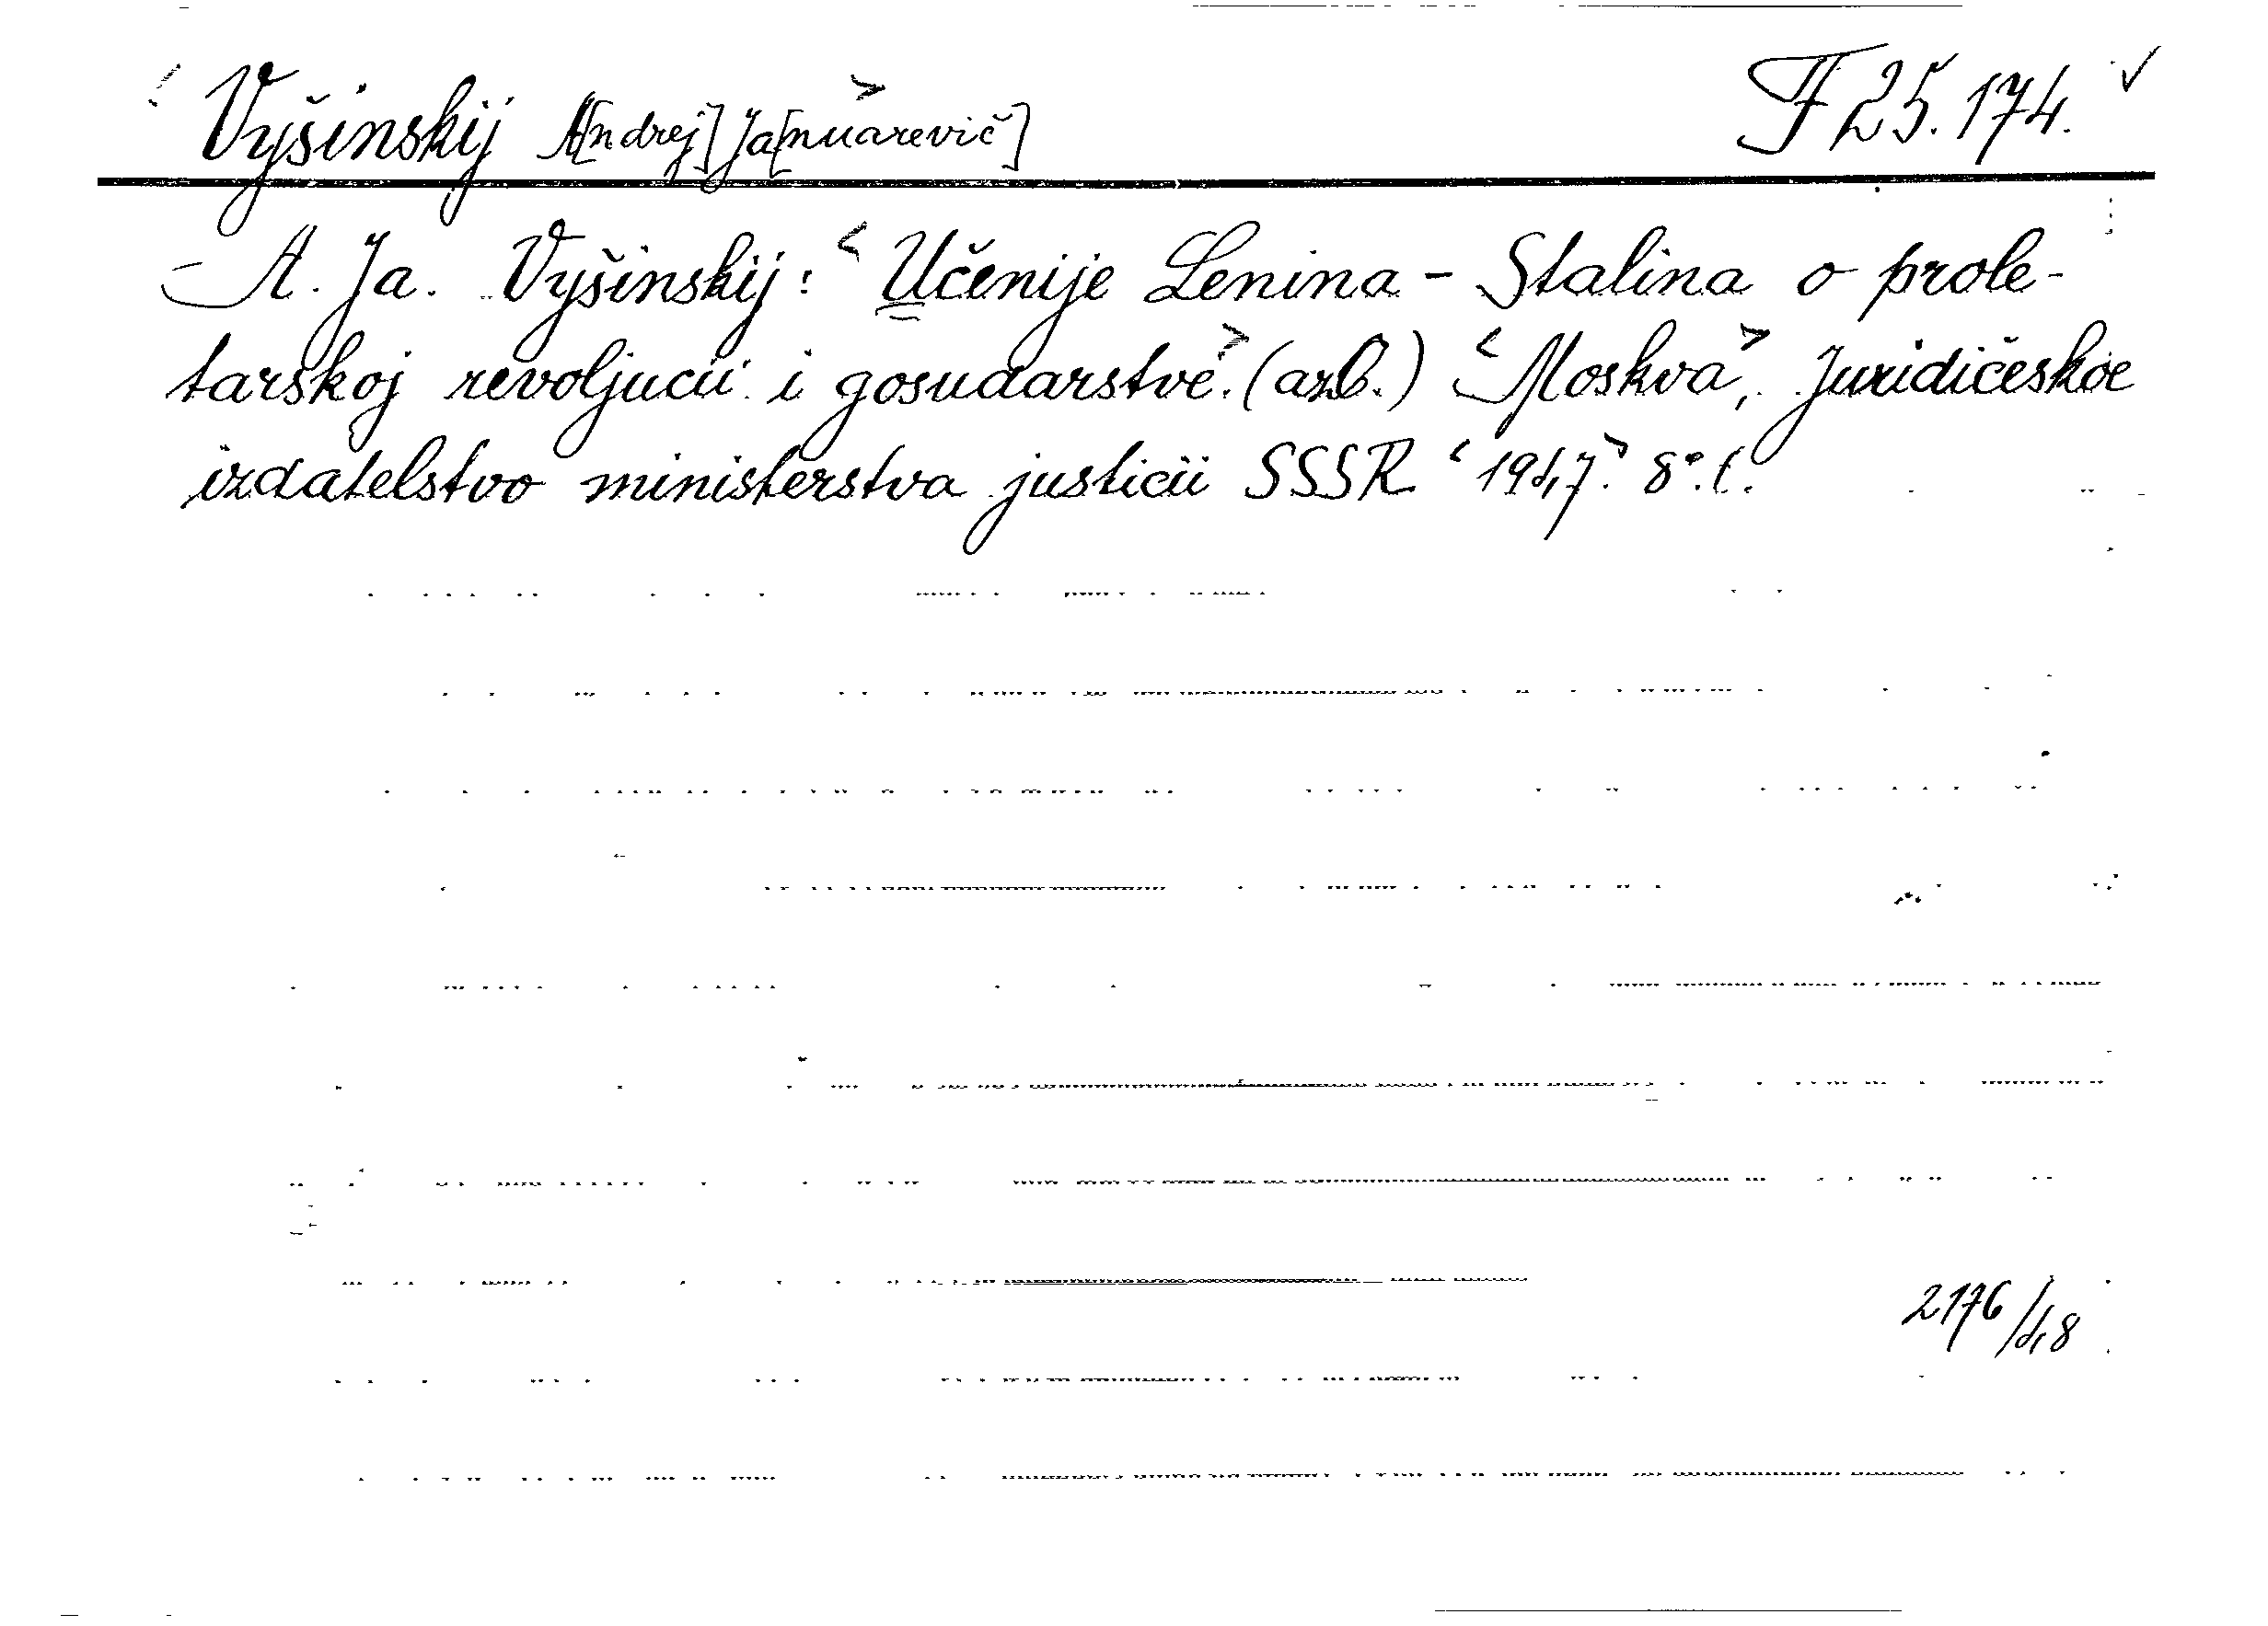 Vyšinskij A[ndrej] Ja[nuarevič] F 25.174.
A. Ja. Vyšinskij: Učenije Lenina - Stalina o prole-
tarskoj revoljucii i gosudarstve. (azb.) Moskva, Juridičeskoe
izdatelstvo ministerstva justicii SSSR 1947. 8°. l.
2176/48